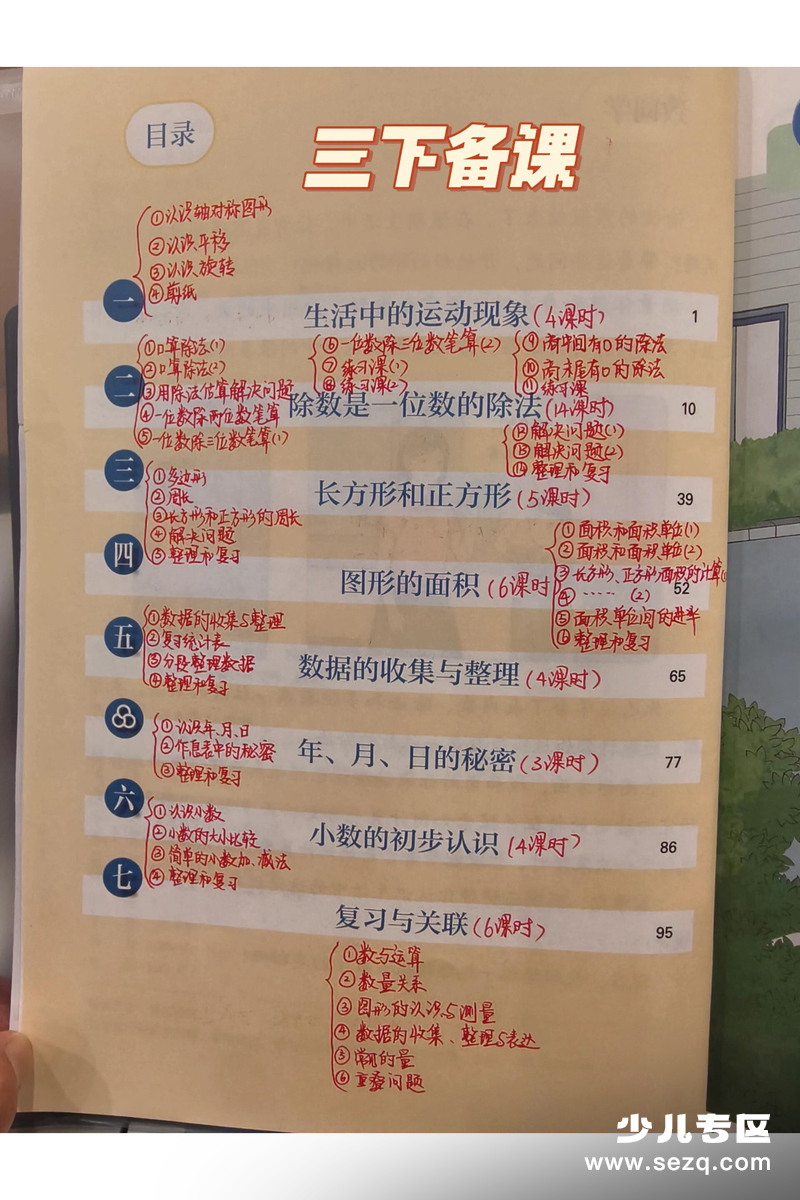 目录
三下备课
①认识轴对称图形
②认识平移
③认识旋转
④剪纸
一
生活中的运动现象(4课时) 1
①口算除法(1)
②口算除法(2)
③用除法估算解决问题
④一位数除两位数笔算
⑤一位数除三位数笔算(1)
⑥一位数除三位数笔算(2)
⑦练习课(1)
⑧练习课(2)
⑨商中间有0的除法
⑩商末尾有0的除法
⑪练习课
二
除数是一位数的除法(14课时) 10
⑫解决问题(1)
⑬解决问题(2)
⑭整理和复习
三
①多边形
②周长
③长方形和正方形的周长
④解决问题
⑤整理和复习
长方形和正方形(5课时) 39
四
图形的面积(6课时) 52
①面积和面积单位(1)
②面积和面积单位(2)
③长方形、正方形面积的计算(1)
④ …… (2)
⑤面积单位间的进率
⑥整理和复习
五
①数据的收集与整理
②复习统计表
③分段整理数据
④整理和复习
数据的收集与整理(4课时) 65
①认识年、月、日
②作息表中的秘密
③整理和复习
年、月、日的秘密(3课时) 77
六
①认识小数
②小数的大小比较
③简单的小数加、减法
④整理和复习
小数的初步认识(4课时) 86
七
复习与关联(6课时) 95
①数与运算
②数量关系
③图形的认识与测量
④数据的收集、整理与表达
⑤常见的量
⑥重叠问题
少儿专区
www.sezq.com